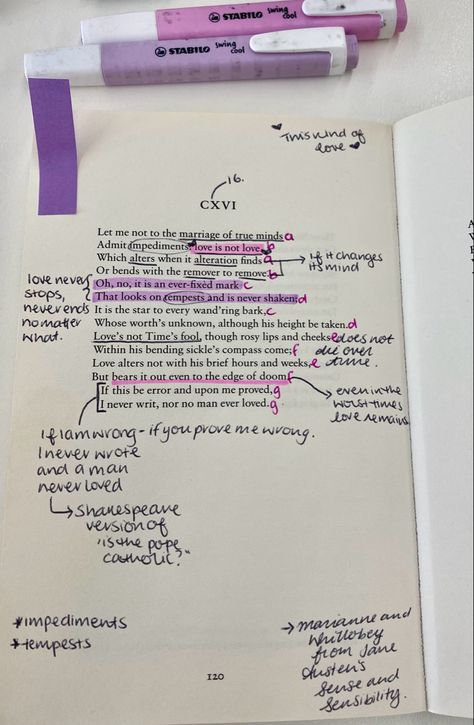 STABILO swing cool
STABILO swing cool
This kind of
love
16.
CXVI
Let me not to the marriage of true minds a
Admit impediments; love is not love b
Which alters when it alteration finds a
Or bends with the remover to remove: b
if it changes
its mind
Oh, no, it is an ever-fixèd mark c
That looks on tempests and is never shaken; d
love never
stops,
never ends
no matter
what.
It is the star to every wand'ring bark, c
Whose worth's unknown, although his height be taken. d
Love's not Time's fool, though rosy lips and cheeks e
Within his bending sickle's compass come; f
does not
die over
time.
Love alters not with his brief hours and weeks, e
But bears it out even to the edge of doom. f
even in the
worst times
love remains
If this be error and upon me proved, g
I never writ, nor no man ever loved. g
If I am wrong - if you prove me wrong.
I never wrote
and a man
never loved
Shakespeare
version of
"is the pope
catholic?"
*impediments
*tempests
marianne and
Whillobey
from Jane
Austen's
Sense and
Sensibility.
120